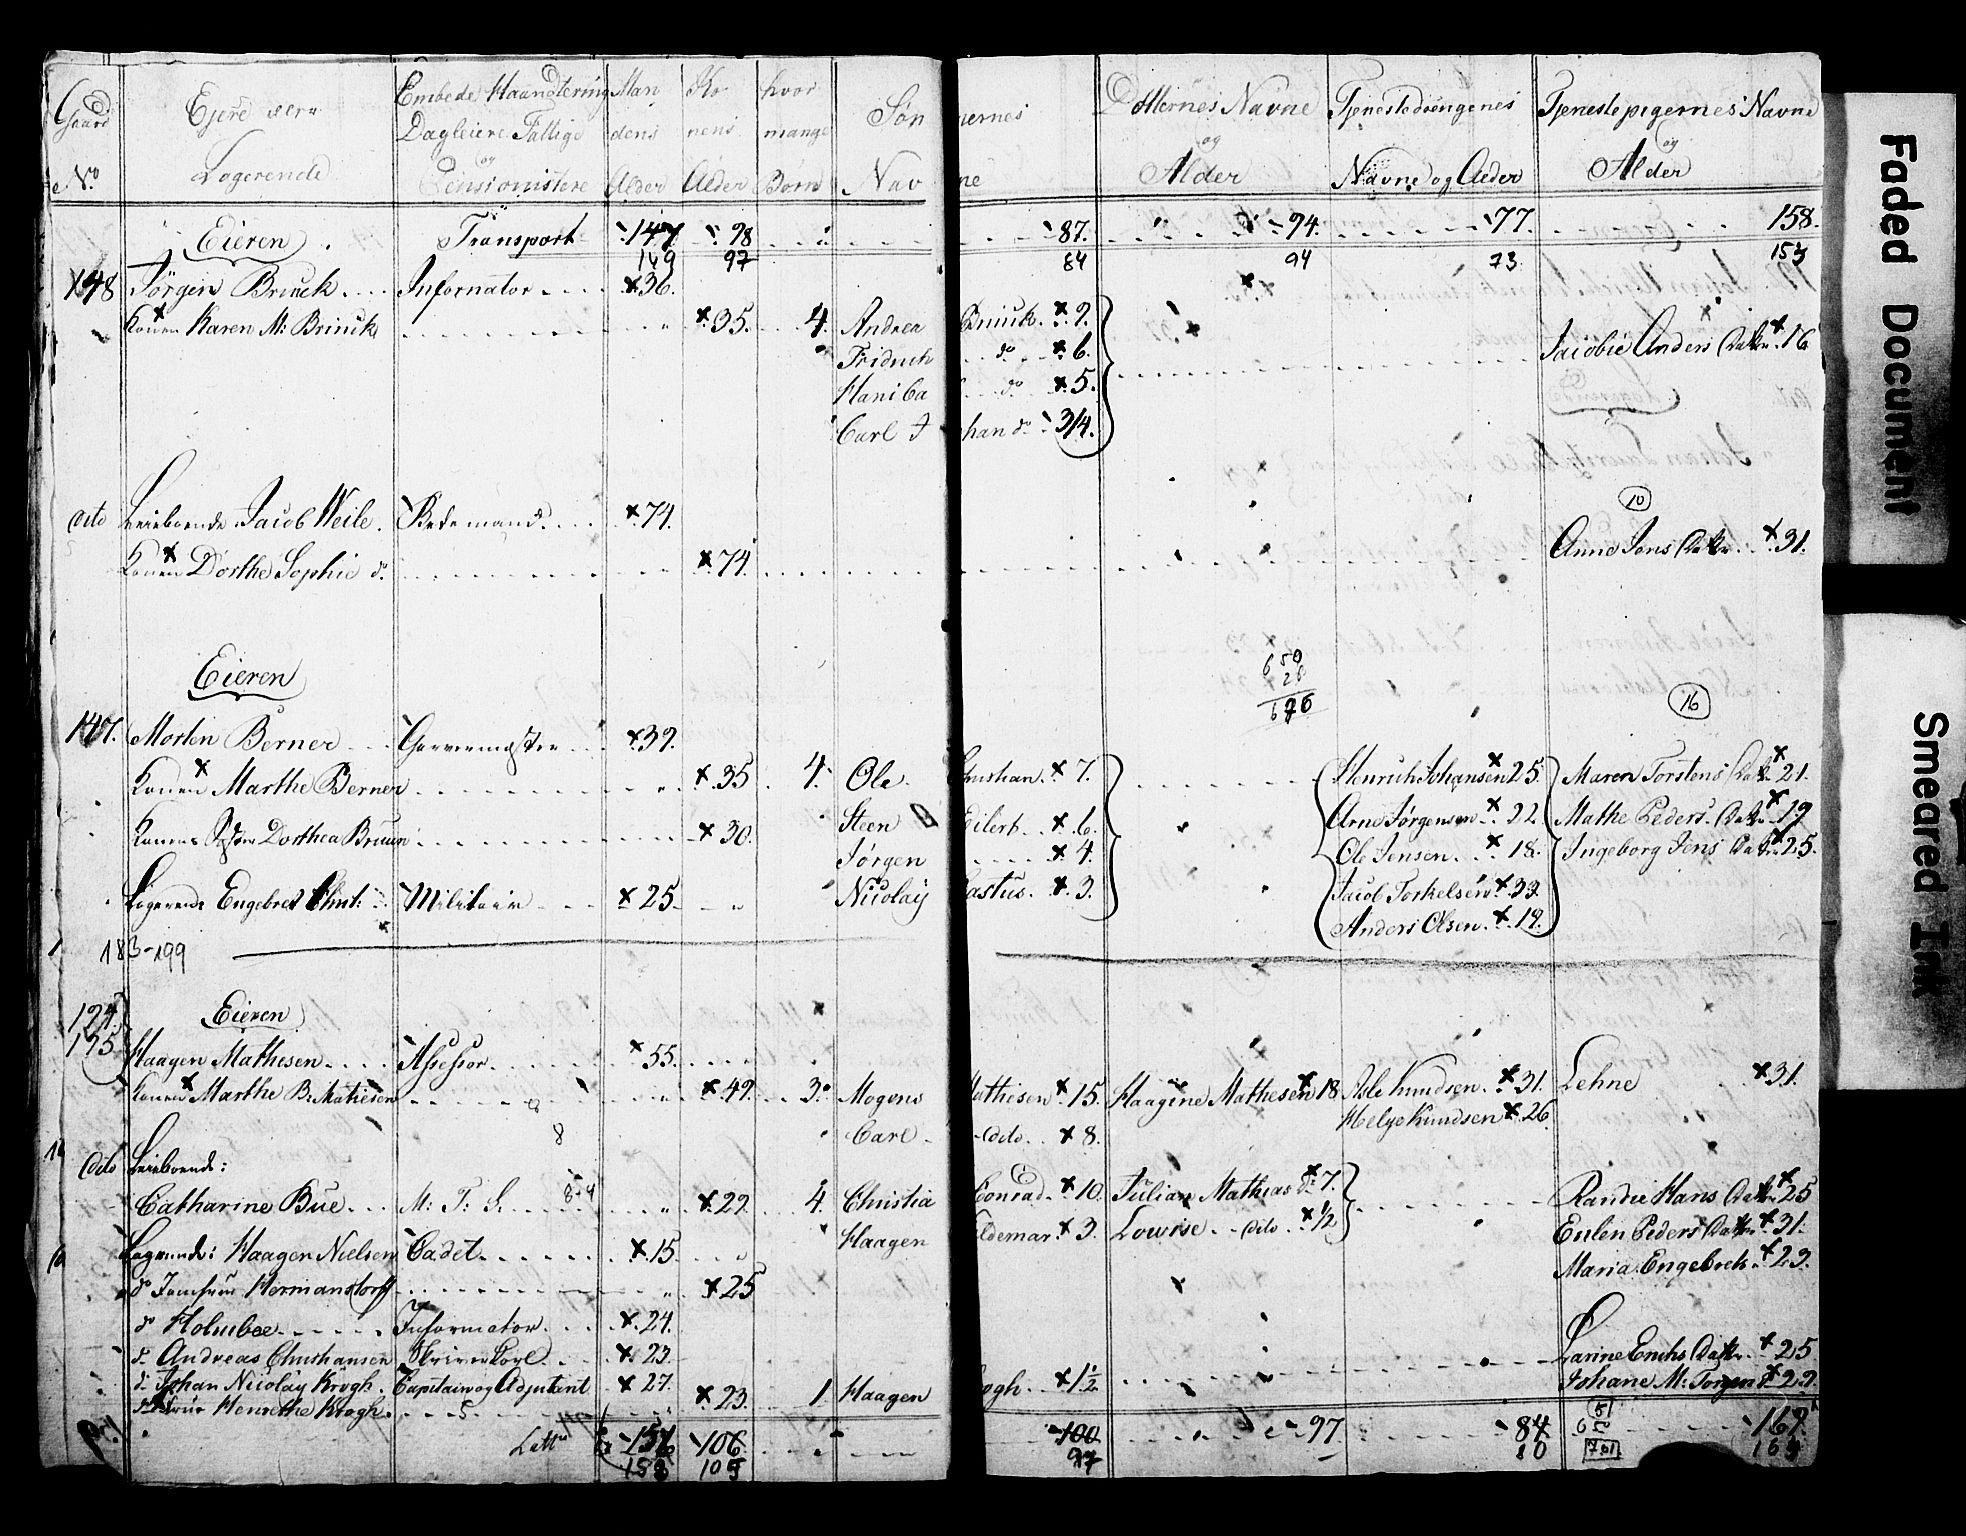 Gaard No. Ejere eller Logerende Embede Haandtering Dagleiere Fattige og Pensionistere Mandens Alder Konens Alder hvor mange Børn Sønnernes Navne Døtternes Navne og Alder Tjenestedrengenes Navne og Alder Tjenestepigernes Navne og Alder
Eieren Transport 147. 98 87. 94. 77. 158.
149 97 84 94 73 153
148 Jørgen Brinck Informator 36.
Konen Karen M: Brinck 35. 4. Andrea Brinck 9. Jacobie Anders Datter 16
Fridrich do 6.
Haniba do 5.
Carl J han do 3/4.
10
dito Leieboende Jacob Weile. Bedemand. 74.
Konen Dorthe Sophie do. 74. Anne Jens Datter 31.
650
26
676
Eieren
16
147. Morten Berner Garvermester 39.
Konen Marthe Berner 35 4. Ole Christian 7. Henrich Johansen 25. Maren Torstens Datter 21.
Konens Søster Dorthea Bruun 30. Steen Eilert 6. Arne Jørgensen 22 Mathe Peders Datter 19
Jørgen 4. Ole Jensen 18. Ingeborg Jens Datter 25.
Logerende Engebret Militair 25 Nicolay 3. Jacob Torkelsen 33.
Anders Olsen 19.
183-199
Eieren
Haagen Mathesen Assessor 55.
Konen Marthe B. Mathiesen 49. 3. Mogens Mathiesen 15. Haagine Mathesen 18 Asle Knudsen 31. Lehne 31.
Carl dito 8. Helge Knudsen 26.
8
dito Leieboende:
Catharine Bue M: T: S. 29. 4. Christia Conrad 10. Julian Mathias do 7. Randie Hans Datter 25
Haagen ldemar 3. Lowise dito 1/2 Eulen Peders Datter 31.
Logerende: Haagen Nielsen Cadet 15. Maria Engebrets 23.
do Jomfrue Hermanstorff 25
do Holmboe Informator 24.
do Andreas Christiansen Skriverkarl 23. Larine Erichs Datter 25
do Johan Nicolay Krogh. Capitain og Adjutant 27. Johane M: 22.
do Frue Henrethe Krogh. 23. 1. Haagen ogh. 1 1/2
Latt 156 106. 100 97 84 169.
158 105 97 80 701 163
Faded Document
Smeared Ink